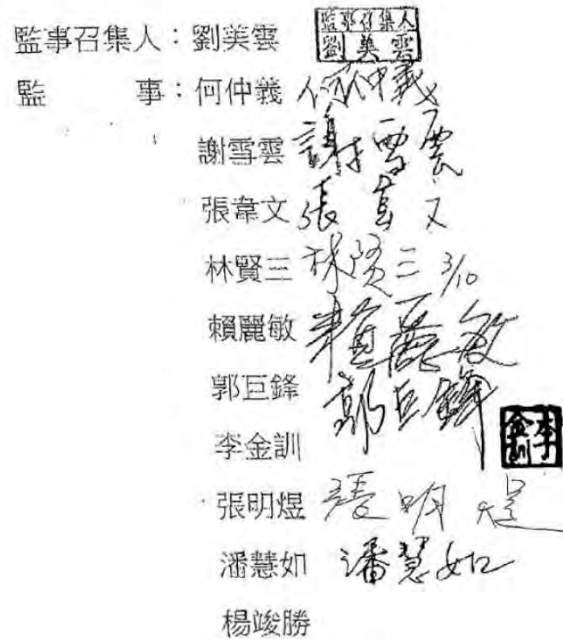 監事召集人：劉美雲 監事召集人 劉美雲
監 事：何仲義 何仲義
謝雪雲 謝雪雲
張韋文 張韋文
林賢三 林賢三 3/10
賴麗敏 賴麗敏
郭巨鋒 郭巨鋒
李金訓 李金訓
張明煜 張明煜
潘慧如 潘慧如
楊竣勝